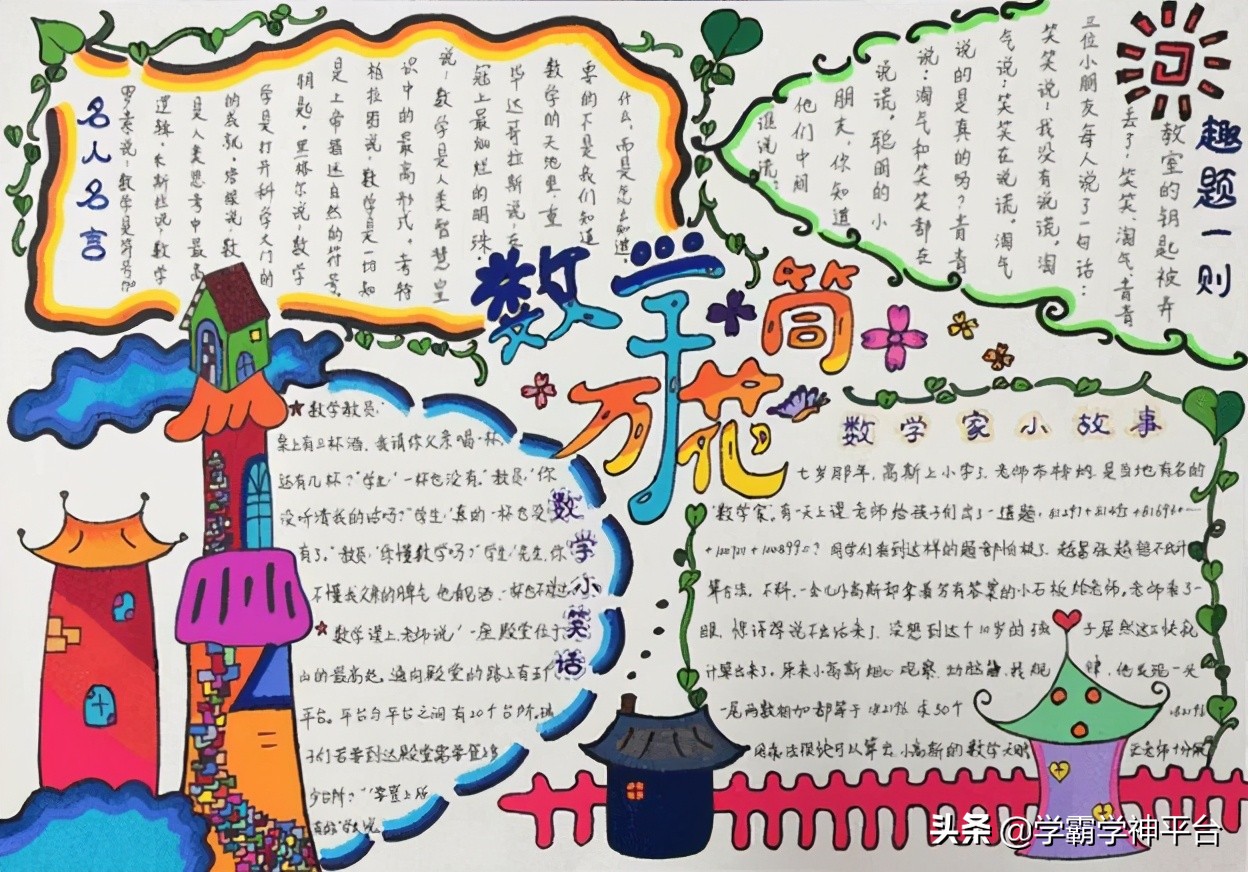 名人名言
罗素说,数学是符号加
逻辑,斯拉说,数学
是人类思考中最高
的成就,培根说,数
学是打开科学大门的
钥匙,黑格尔说,数学
是上帝描述自然的符号,
柏拉图说,数学是一切知
识中的最高形式,考特
说:数学是人类智慧皇
冠上最灿烂的明珠
毕达哥拉斯说,在
数学的天地里,重
要的不是我们知道
什么,而是怎么知道
趣题一则
教室的钥匙被弄
丢了,笑笑、淘气、青青
三位小朋友每人说了一句话:
笑笑说:我没有说谎。淘
气说:笑笑在说谎。淘气
说的是真的吗?青青
说:淘气和笑笑都在
说谎。聪明的小
朋友,你知道
他们中间
谁说谎?
数学万花筒
数学小笑话
★数学教员:
桌上有五杯酒,我请你父亲喝一杯,
还有几杯?"学生:"一杯也没有。"教员:"你
没听清我的话吗?"学生:"真的一杯也没
有了。"教员:"你懂数学吗?"学生:"先生,你
不懂我父亲的脾气,他看见酒,一杯也不放过
★数学课上,老师说"一座殿堂位于
山的最高处。通向殿堂的路上有五个
平台。平台与平台之间有20个台阶。孩
子们若要到达殿堂需要登上多
少台阶?"
数学家小故事
七岁那年,高斯上小学了。老师布特纳,是当地有名的
"数学家"。有一天上课老师给孩子们出了一道题,81297+81495+81693+…
+100701+100899=?同学们看到这样的题都怕极了,越紧张越想不出计
算方法。不料,一会儿小高斯却拿着写有答案的小石板给老师。老师看了一
眼,惊讶得说不出话来了,没想到这个10岁的孩子居然这么快就
计算出来了,原来小高斯细心观察,动脑筋,找规律,他发现一头
一尾两数相加都等于182196 求50个182196